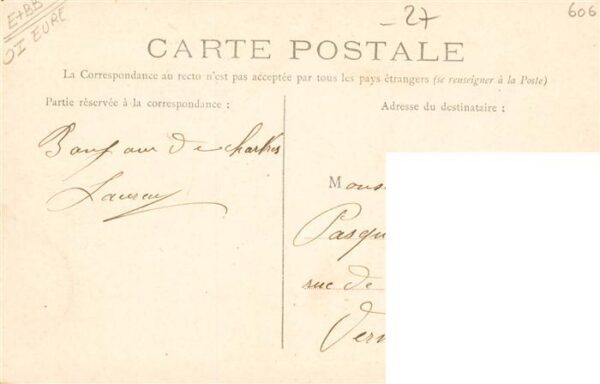 E+BB
OI EURE
-27
606
CARTE POSTALE
La Correspondance au recto n'est pas acceptée par tous les pays étrangers (se renseigner à la Poste)
Partie réservée à la correspondance :
Adresse du destinataire :
de Chartres
Laureny
Mons
Pasqu
rue de
Vern